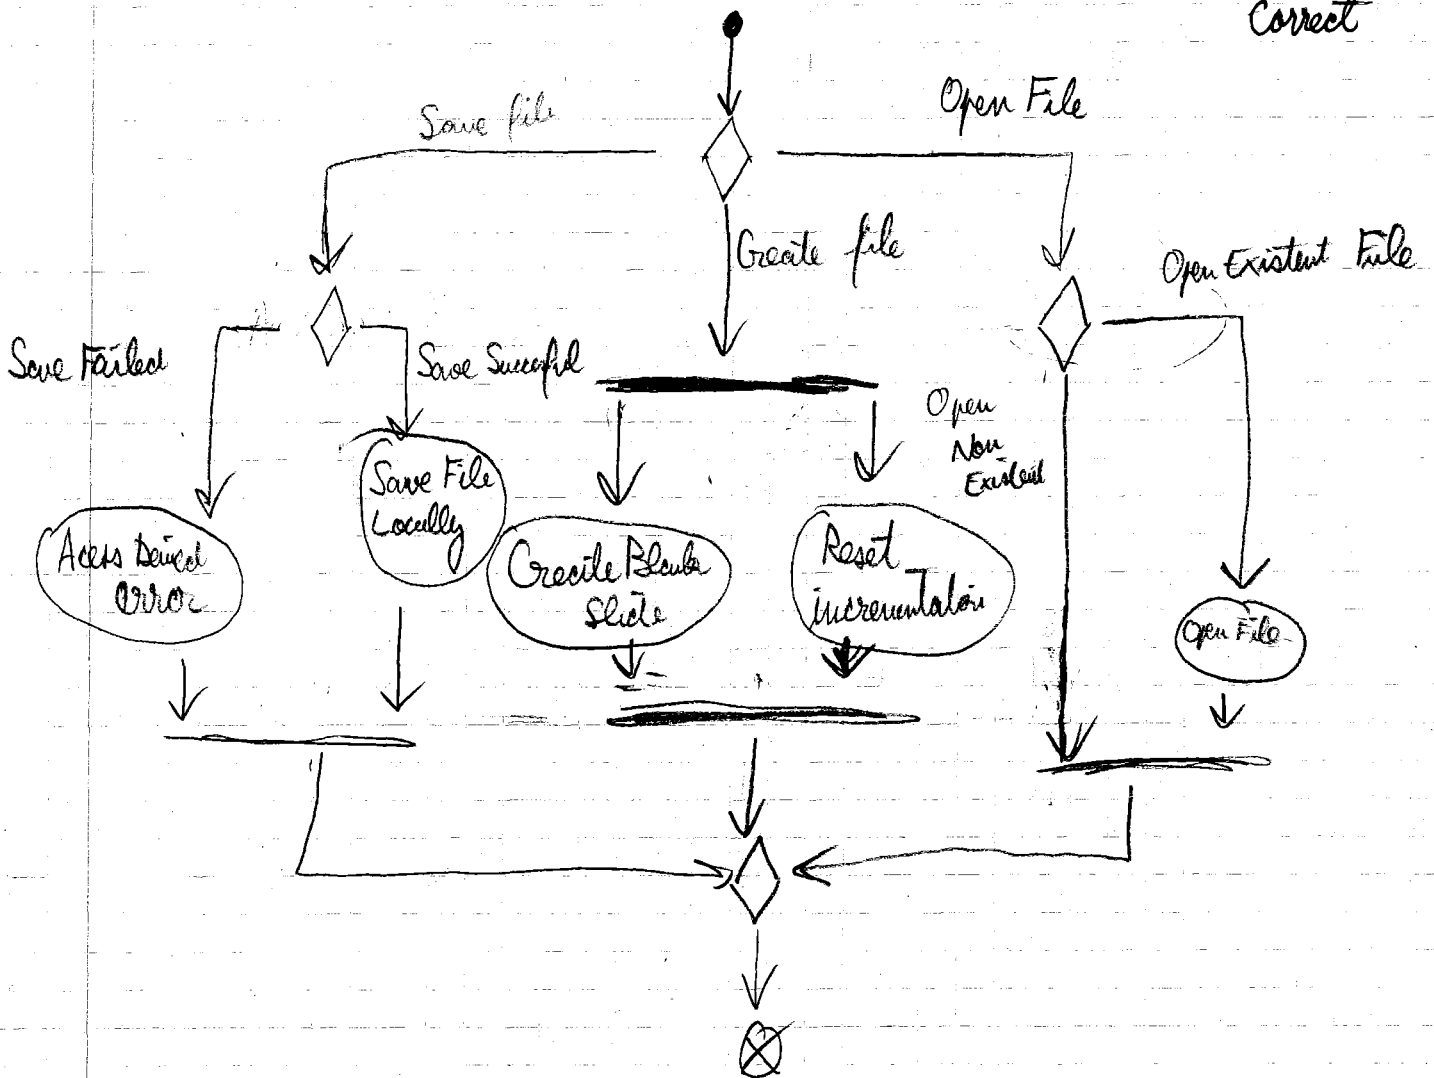 Correct
Save file
Open File
Create file
Open Existent File
Save Failed
Save Succesful
Open
Non
Existent
Save File
Locally
Acess Denied
error
Create Blank
Slide
Reset
incrementation
Open File